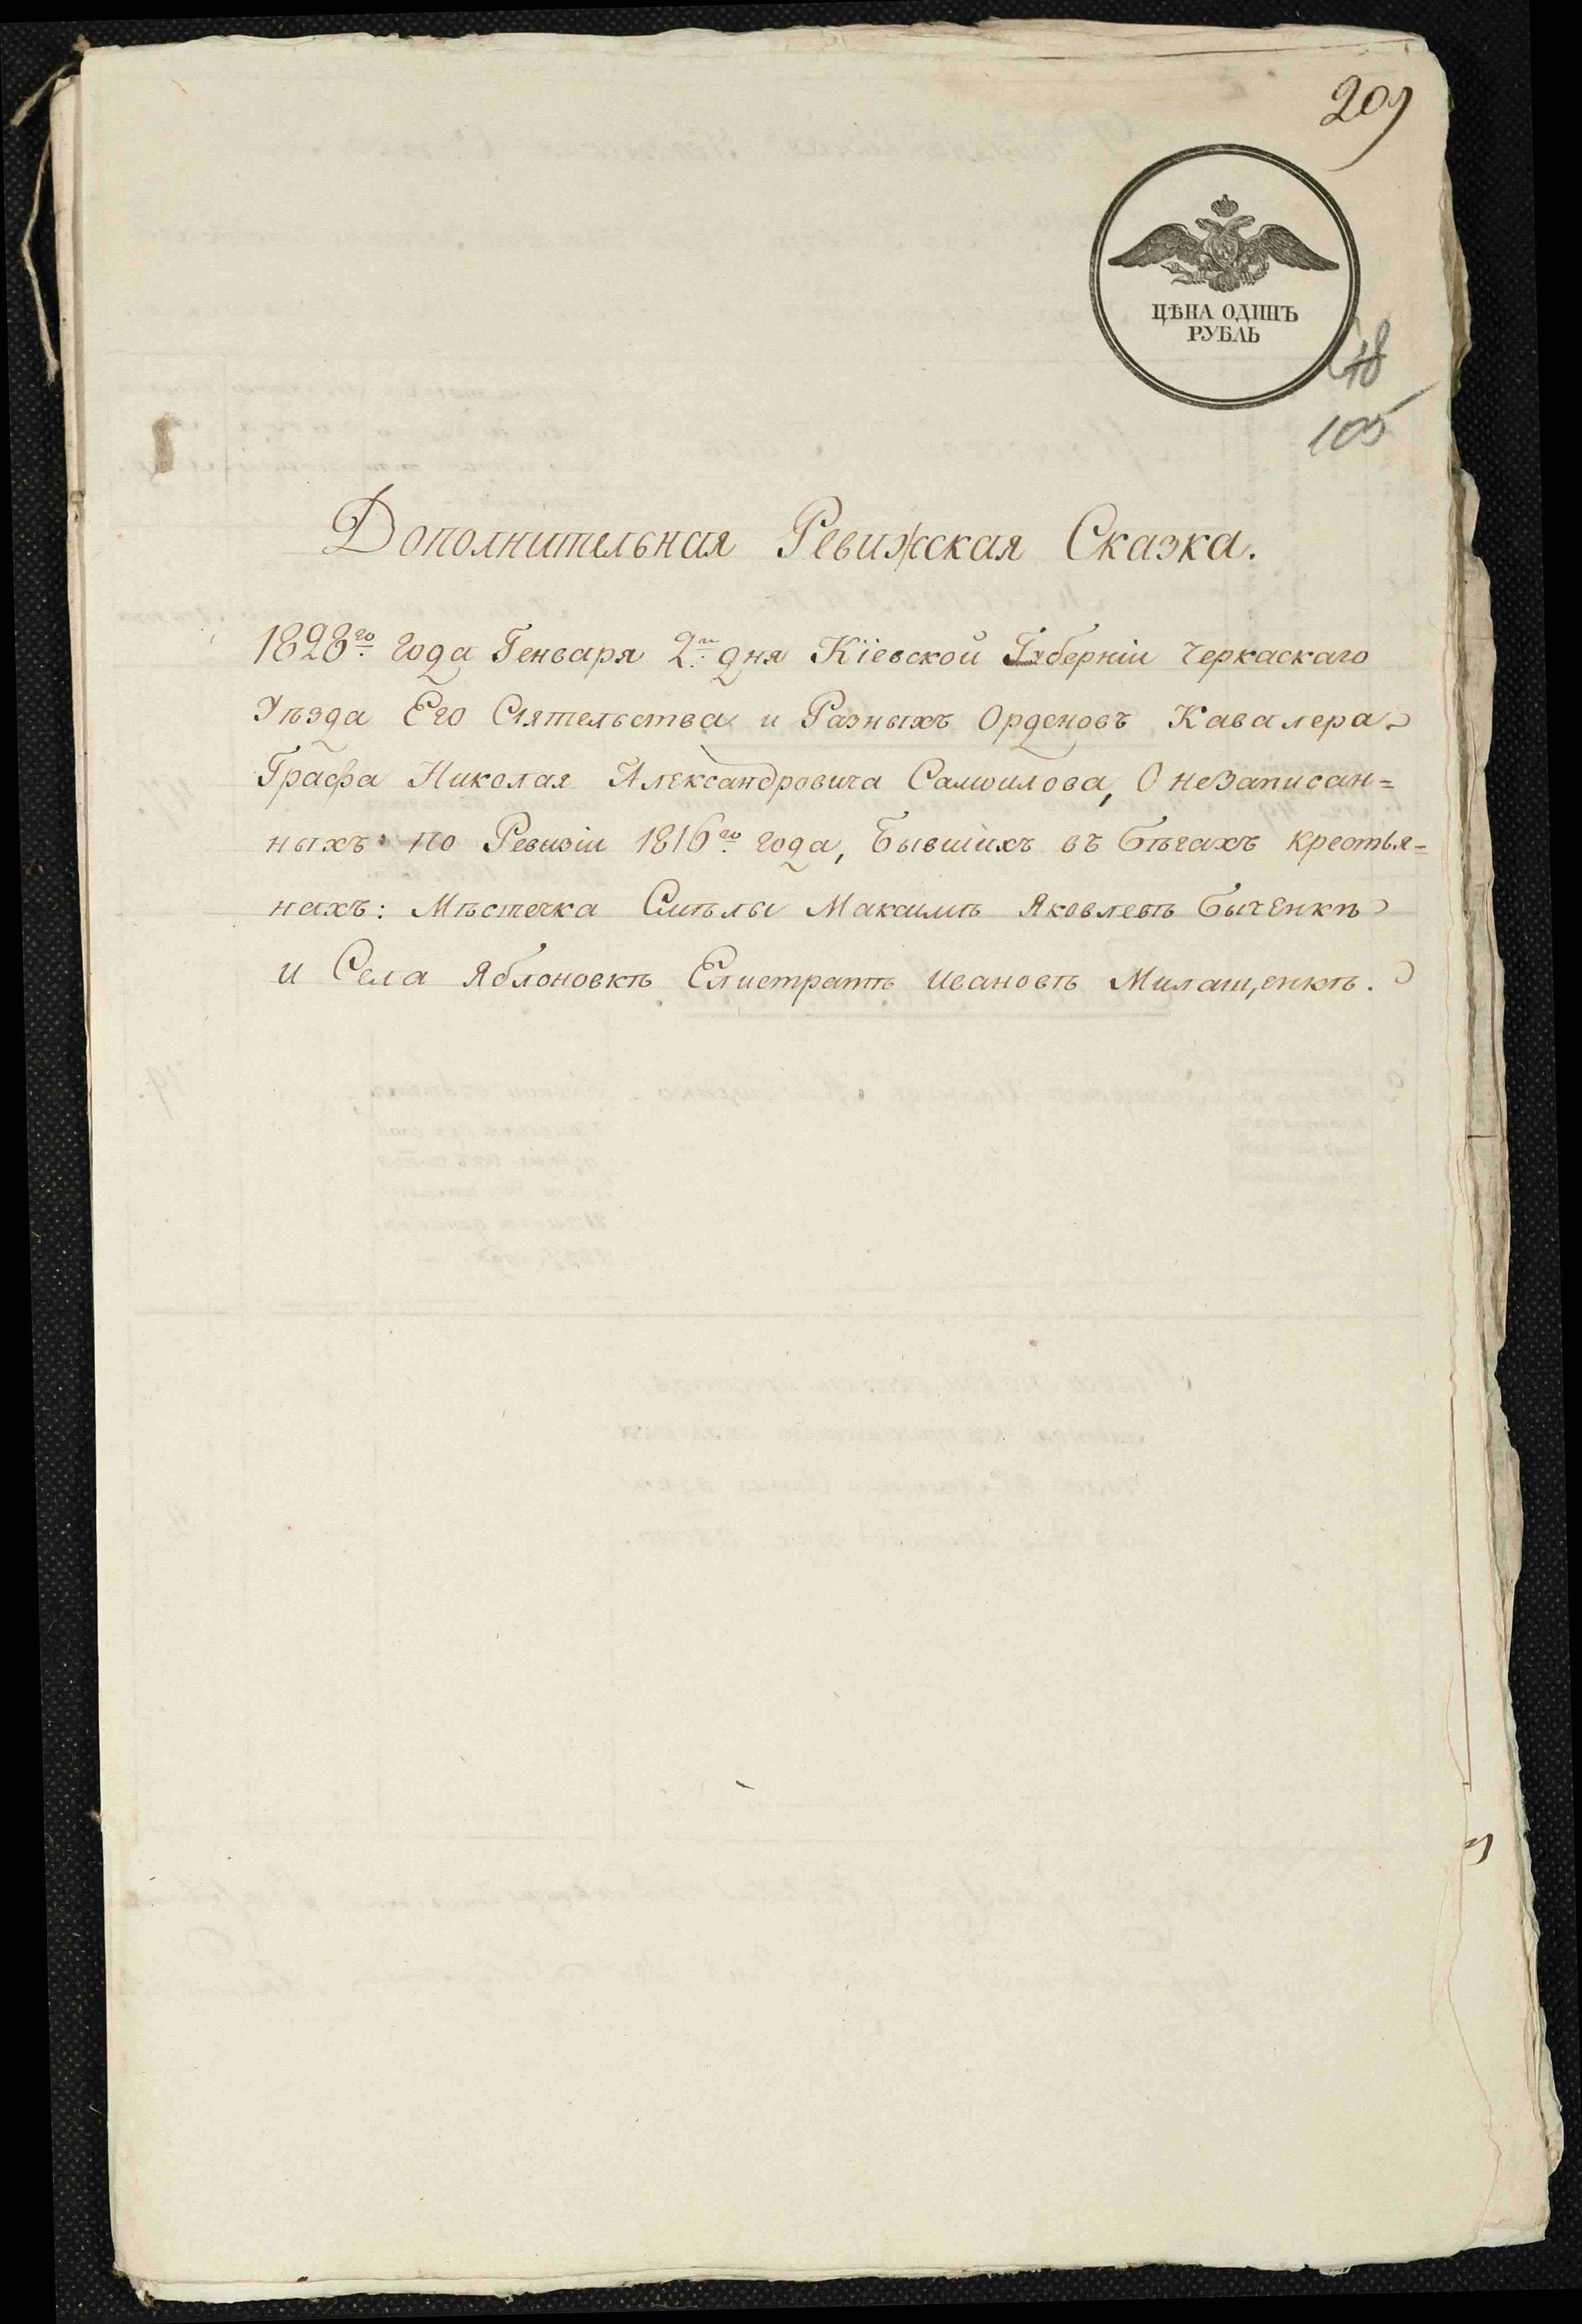 209
ЦѢНА ОДИНЪ
РУБЛЬ
78
105
Дополнительная Ревижская Сказка.
1828го года Генваря 2го дня Кіевской Губерніи Черкаскаго
Уѣзда Его Сіятельства и Разныхъ Орденовъ Кавалера
Графа Николая Александровича Самоилова, О незаписан=
ныхъ по Ревизіи 1816го года, Бывшихъ въ Бѣгахъ крестья=
нахъ: Мѣстечка Смѣлы Максимѣ Яковлевѣ Быченкѣ
и Села Яблоновкѣ Елистратѣ Ивановѣ Милащенкѣ.